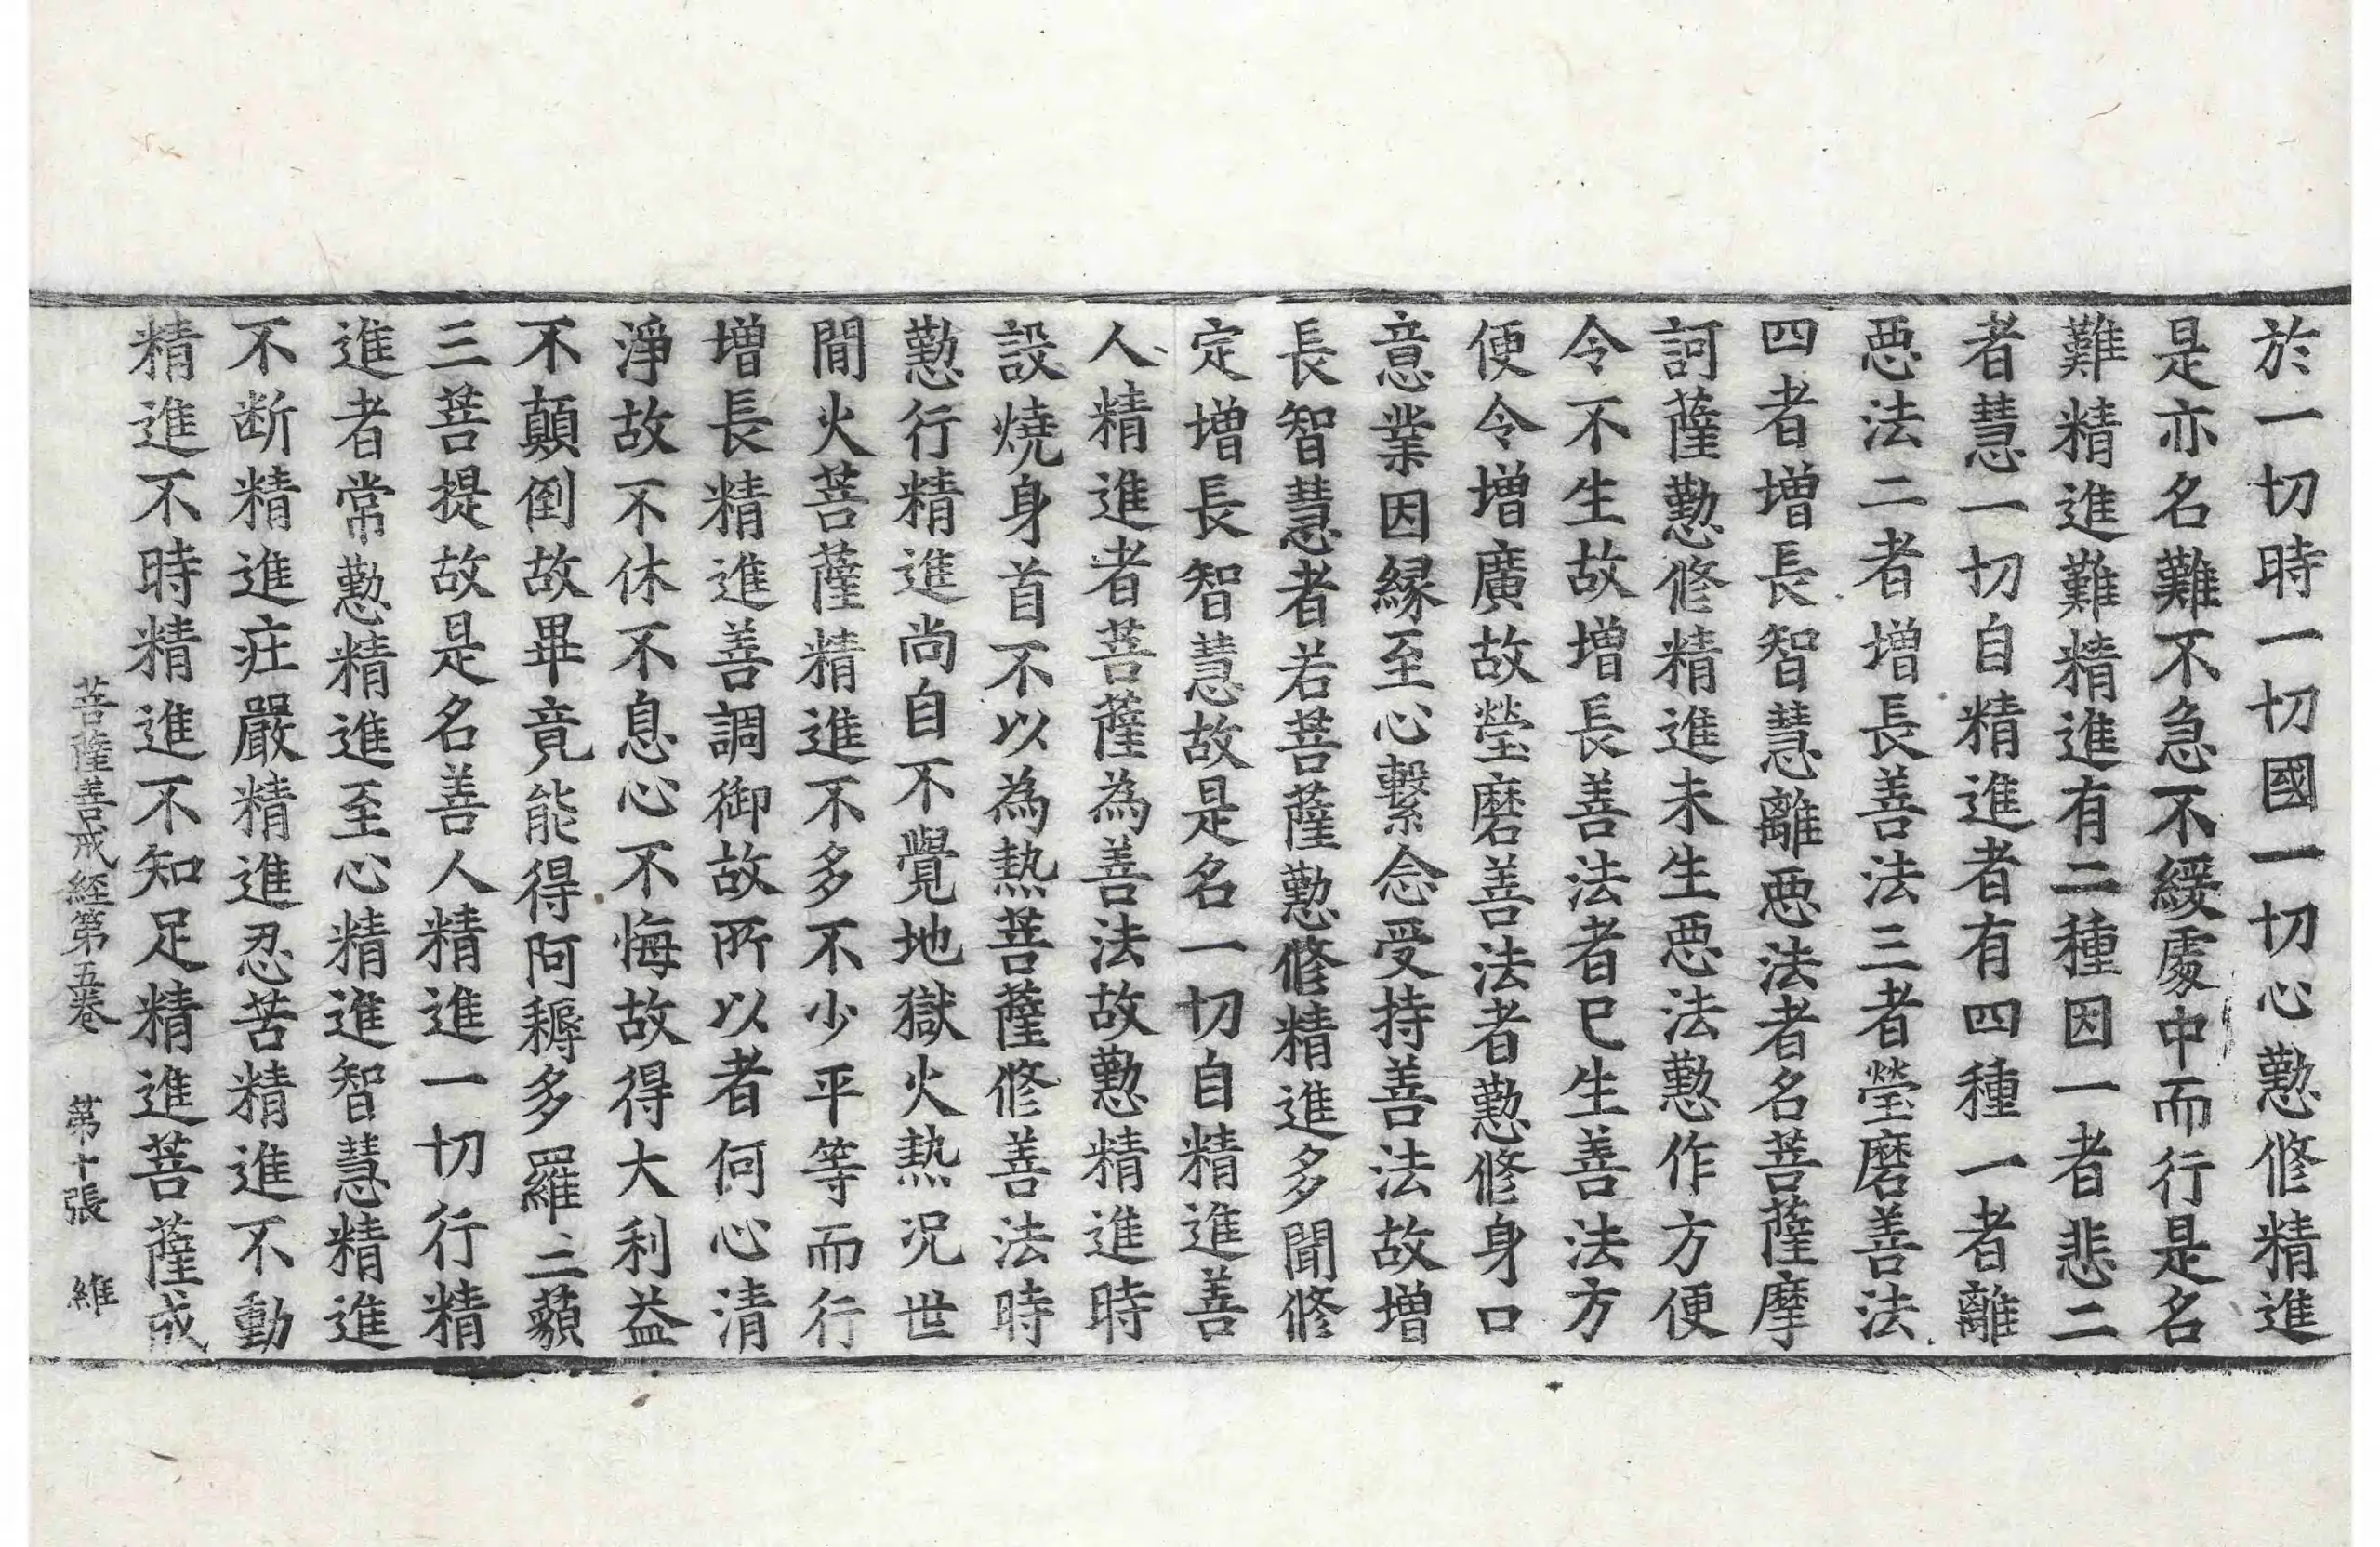 於一切時一切國一切心懃修精進
是亦名難不急不緩處中而行是名
難精進難精進有二種因一者悲二
者慧一切自精進者有四種一者離
惡法二者增長善法三者瑩磨善法
四者增長智慧離惡法者名菩薩摩
訶薩懃修精進未生惡法懃作方便
令不生故增長善法者已生善法方
便令增廣故瑩磨善法者懃修身口
意業因緣至心繫念受持善法故增
長智慧者若菩薩懃修精進多聞修
定增長智慧故是名一切自精進善
人精進者菩薩為善法故懃精進時
設燒身首不以為熱菩薩修善法時
懃行精進尚自不覺地獄火熱況世
間火菩薩精進不多不少平等而行
增長精進善調御故所以者何心清
淨故不休不息心不悔故得大利益
不顛倒故畢竟能得阿耨多羅三藐
三菩提故是名善人精進一切行精
進者常懃精進至心精進智慧精進
不断精進疘嚴精進忍苦精進不動
精進不時精進不知足精進菩薩成
菩薩善戒經第五卷　第十張　維